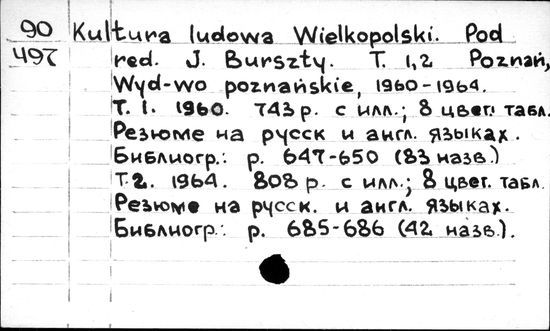 90 Kultura ludowa Wielkopolski. Pod
497 red. J. Burszty. T. 1,2 Poznań,
Wyd-wo poznańskie, 1960-1964.
T. 1. 1960. 743 p. с илл.; 8 цвет. табл.
Резюме на русск и англ. языках.
Библиогр.: p. 647-650 (83 назв.)
T. 2. 1964. 808 p. с илл.; 8 цвет. табл.
Резюме на русск. и англ. языках.
Библиогр.: p. 685-686 (42 назв.).